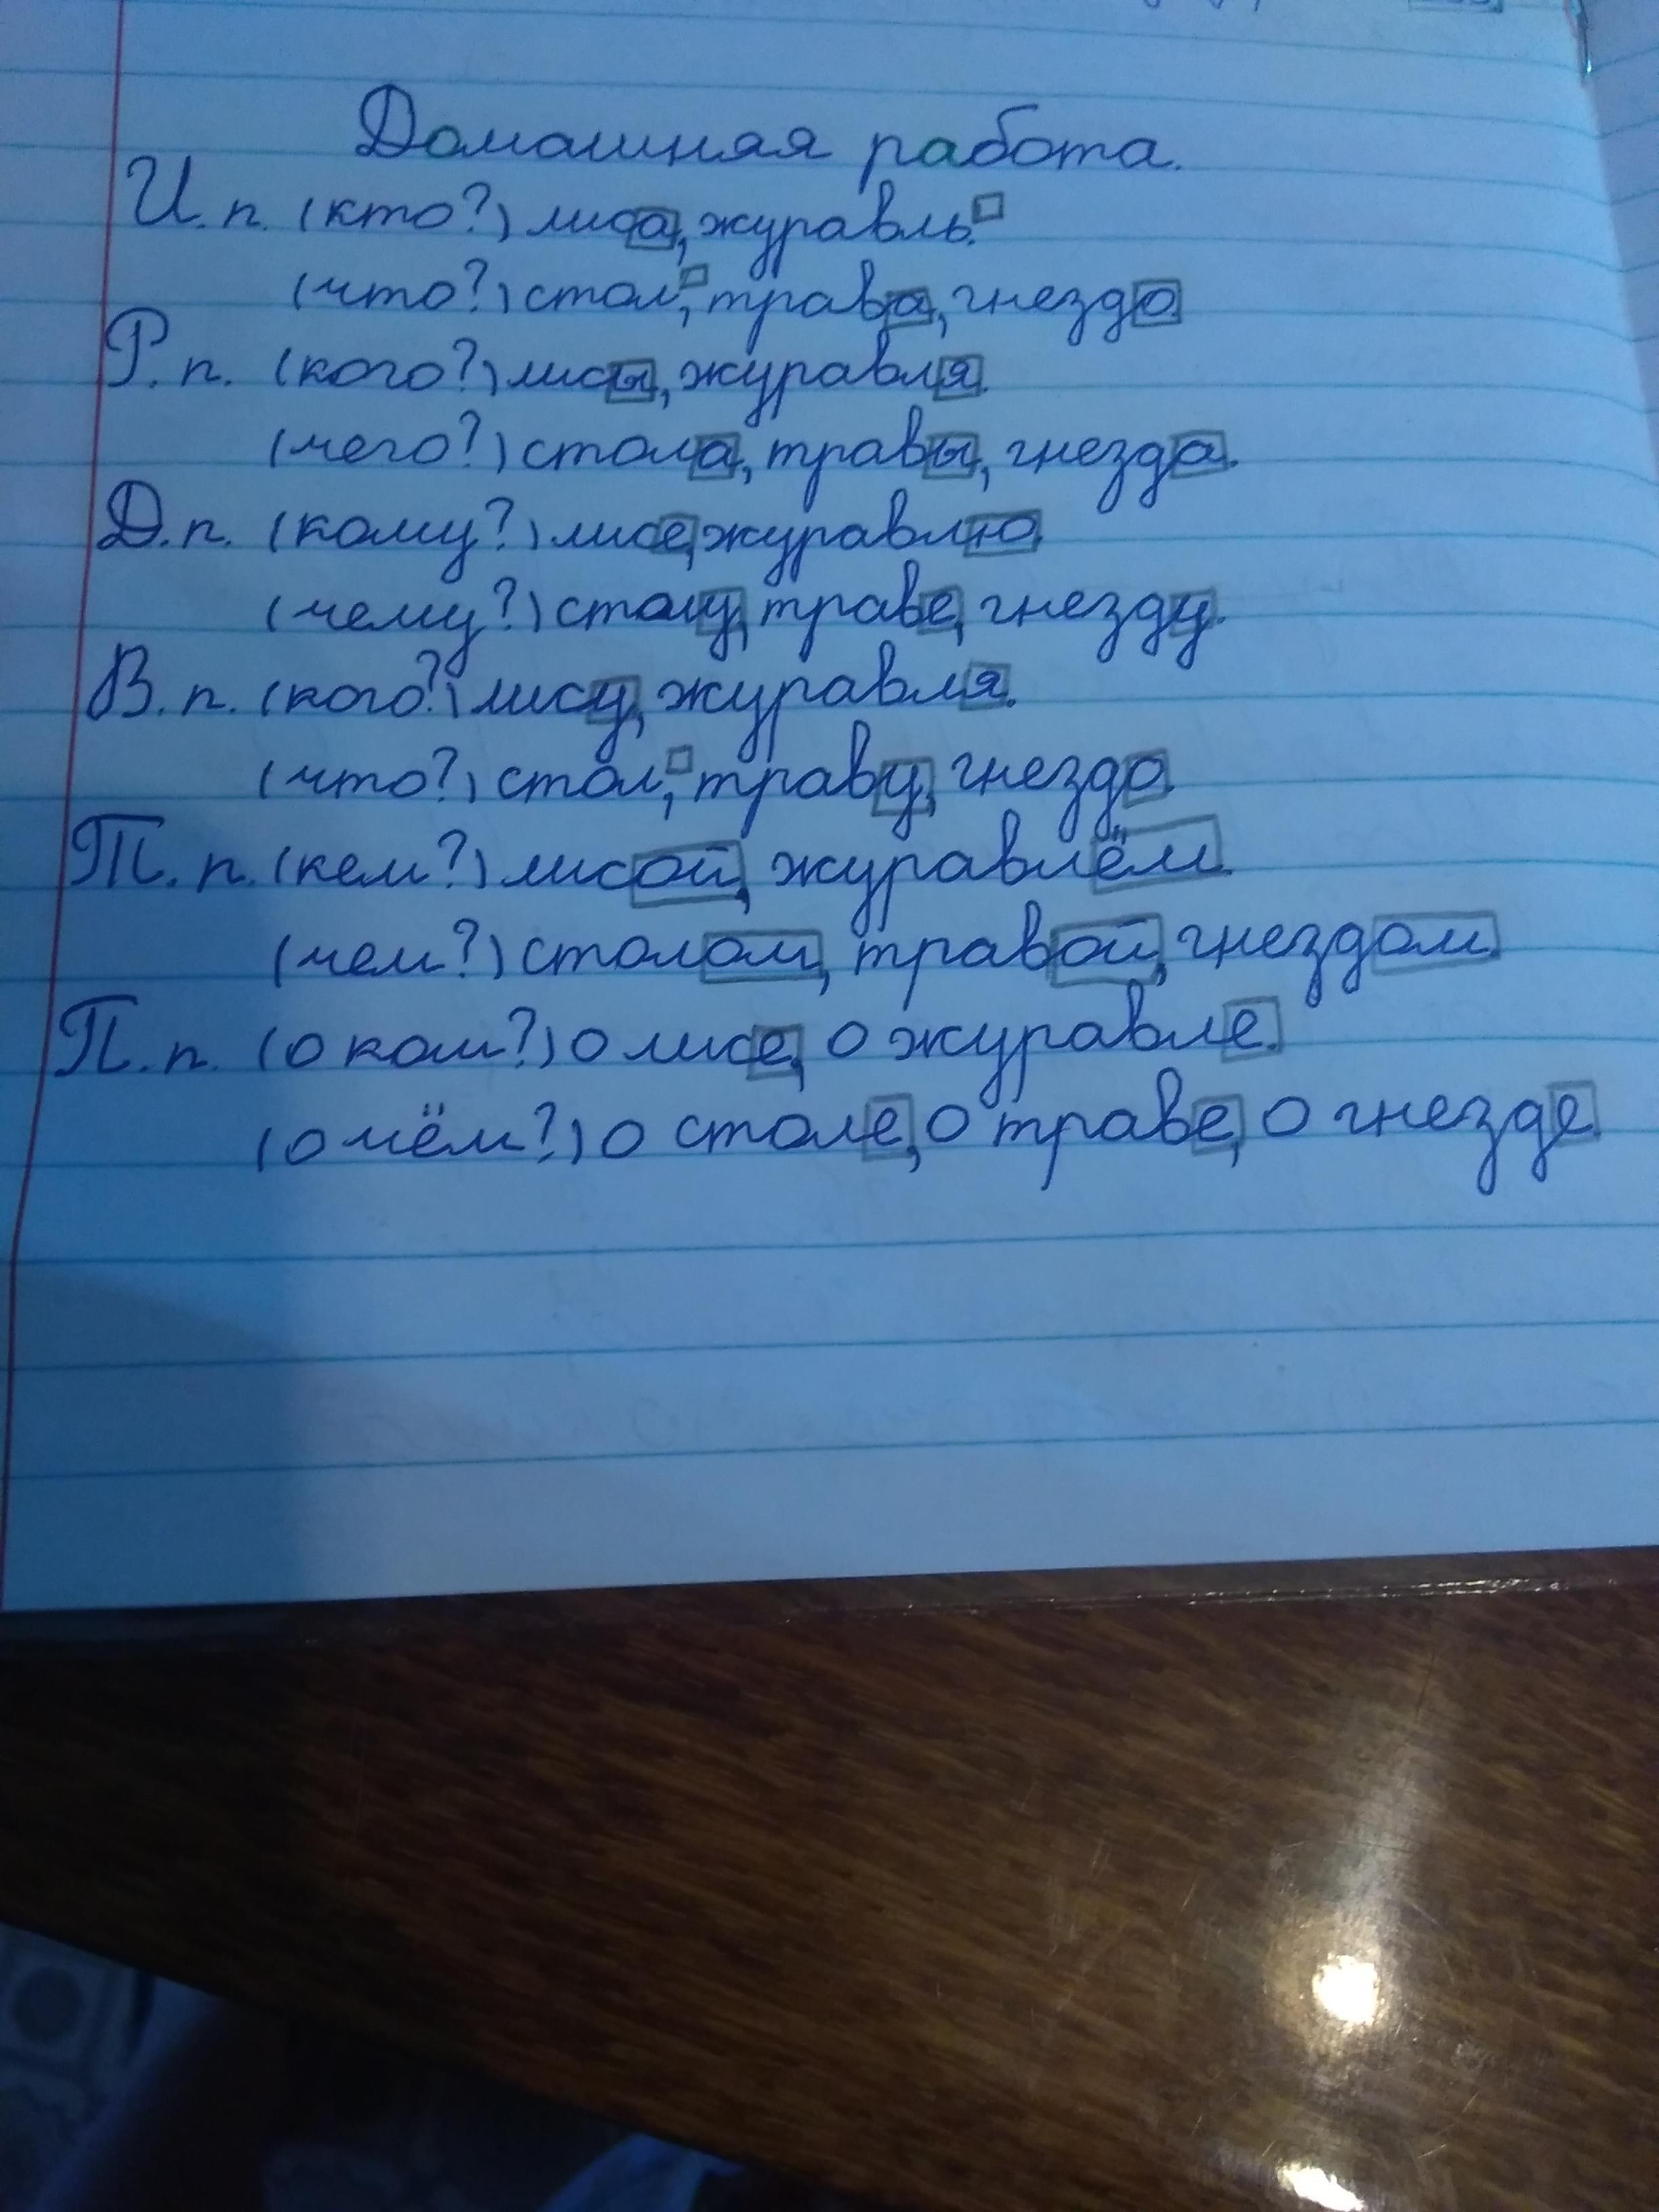 Домашняя работа.
И. п. (кто?) лиса, журавль.
(что?) стол, трава, гнездо.
Р. п. (кого?) лисы, журавля.
(чего?) стола, травы, гнезда.
Д. п. (кому?) лисе, журавлю.
(чему?) столу, траве, гнезду.
В. п. (кого?) лису, журавля.
(что?) стол, траву, гнездо.
Т. п. (кем?) лисой, журавлём.
(чем?) столом, травой, гнездом.
П. п. (о ком?) о лисе, о журавле.
(о чём?) о столе, о траве, о гнезде.